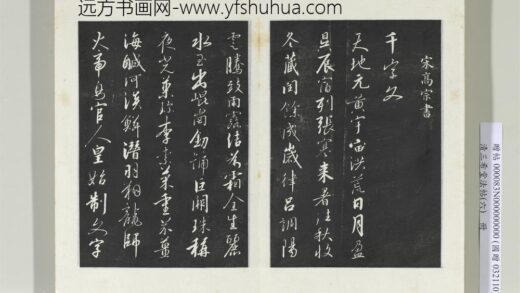 远方书画网- www.yfshuhua.com
宋高宗書
千字文
天地元黃宇宙洪荒日月盈
昃辰宿列張寒來暑往秋收
冬藏閏餘成歲律呂調陽
雲騰致雨露結為霜金生麗
水玉出崐岡劍號巨闕珠稱
夜光菓珍李柰菜重芥薑
海鹹河淡鱗潛羽翔龍師
火帝鳥官人皇始制文字
贈帖 000083N000000000 (國贈 032110
清三希堂法帖(六) 冊